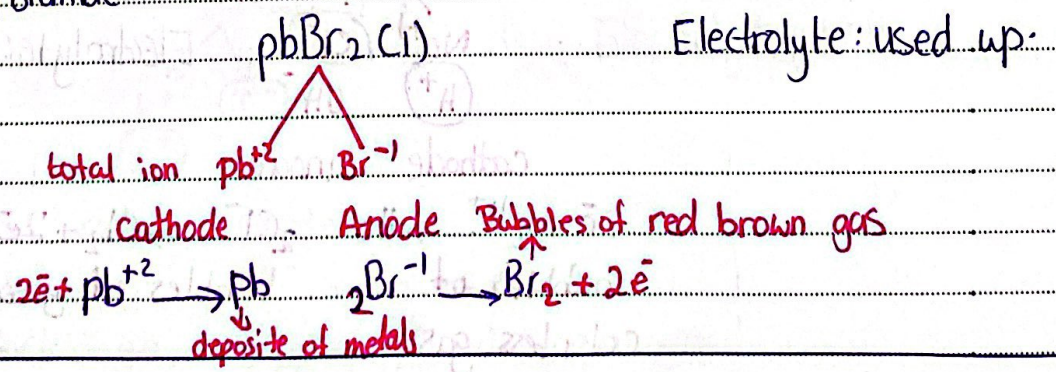 pbBr2 (l) Electrolyte: used up.
total ion pb+2 Br-1
cathode Anode Bubbles of red brown gas
2ē + pb+2 → pb 2Br-1 → Br2 + 2ē
deposite of metals